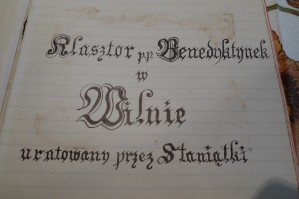 Klasztor pp Benedyktynek
w
Wilnie
uratowany przez Staniątki